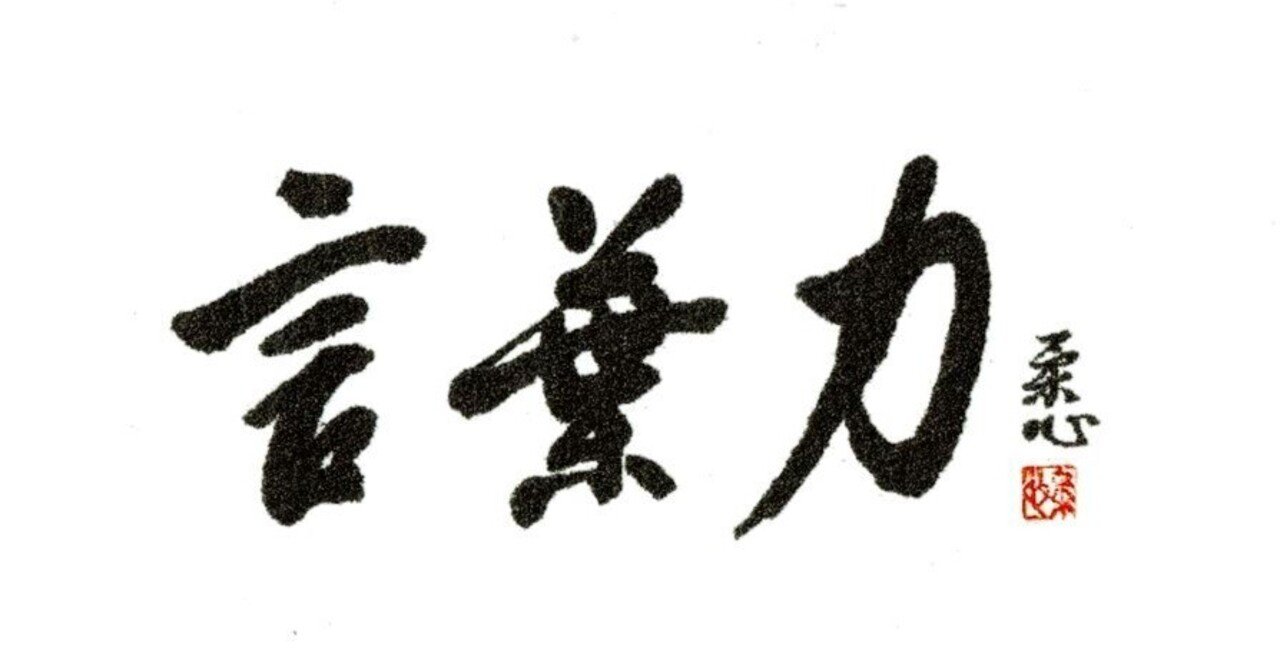 言葉力
柔心